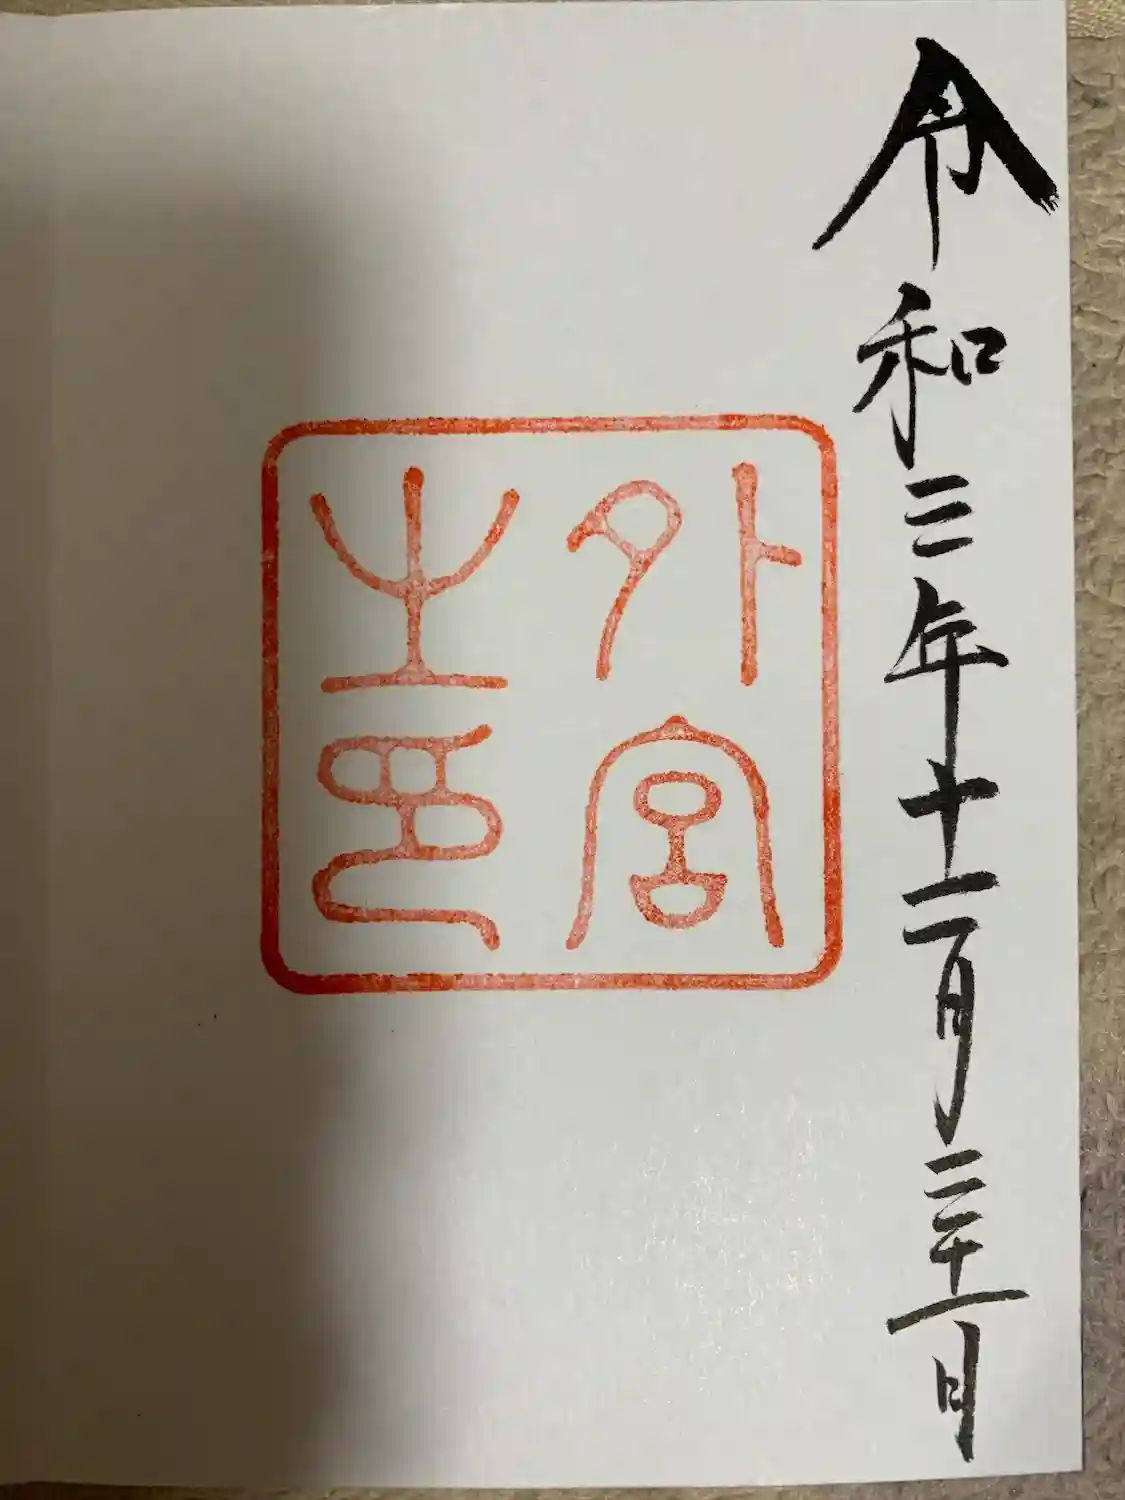 令和三年十二月三十一日
外宮
之印